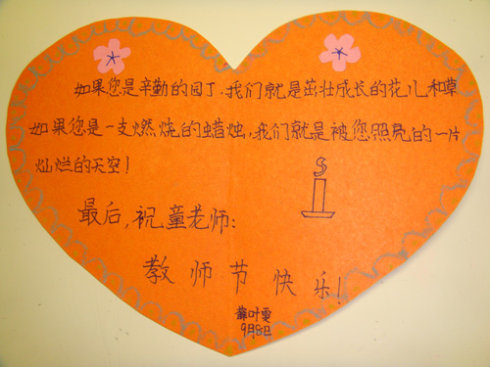 如果您是辛勤的园丁.我们就是茁壮成长的花儿和草
如果您是一支燃烧的蜡烛,我们就是被您照亮的一片
灿烂的天空!
最后,祝童老师:
教师节快乐!
薛叶雯
9月8日